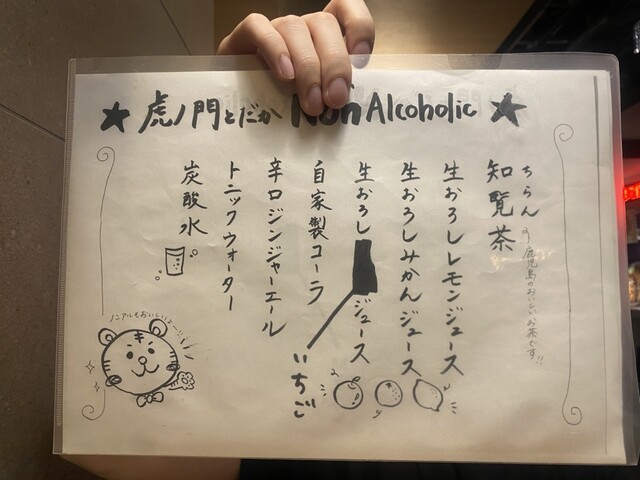 ★ 虎ノ門とだか Non Alcoholic ★
ちらん
知覧茶
鹿児島のおいしいお茶です!!
生おろしレモンジュース
生おろしみかんジュース
生おろし ジュース
いちご
自家製コーラ
辛口ジンジャーエール
トニックウォーター
炭酸水
ノンアルもおいしいよー!!